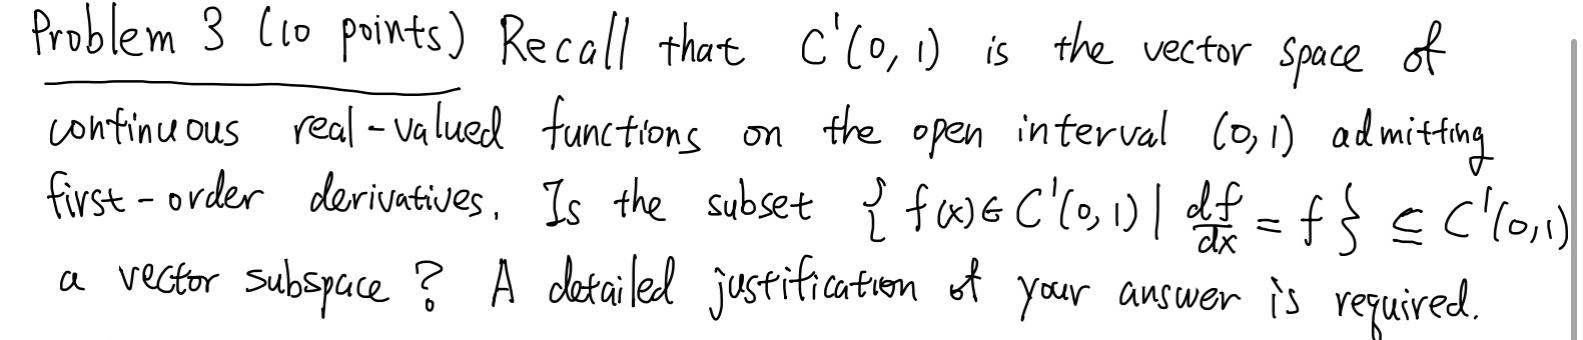 Problem 3 (10 points) Recall that C'(0, 1) is the vector space of
continuous real-valued functions on the open interval (0, 1) admitting
first-order derivatives. Is the subset { f(x) ∈ C'(0, 1) | df/dx = f } ⊆ C'(0, 1)
a vector subspace? A detailed justification of your answer is required.